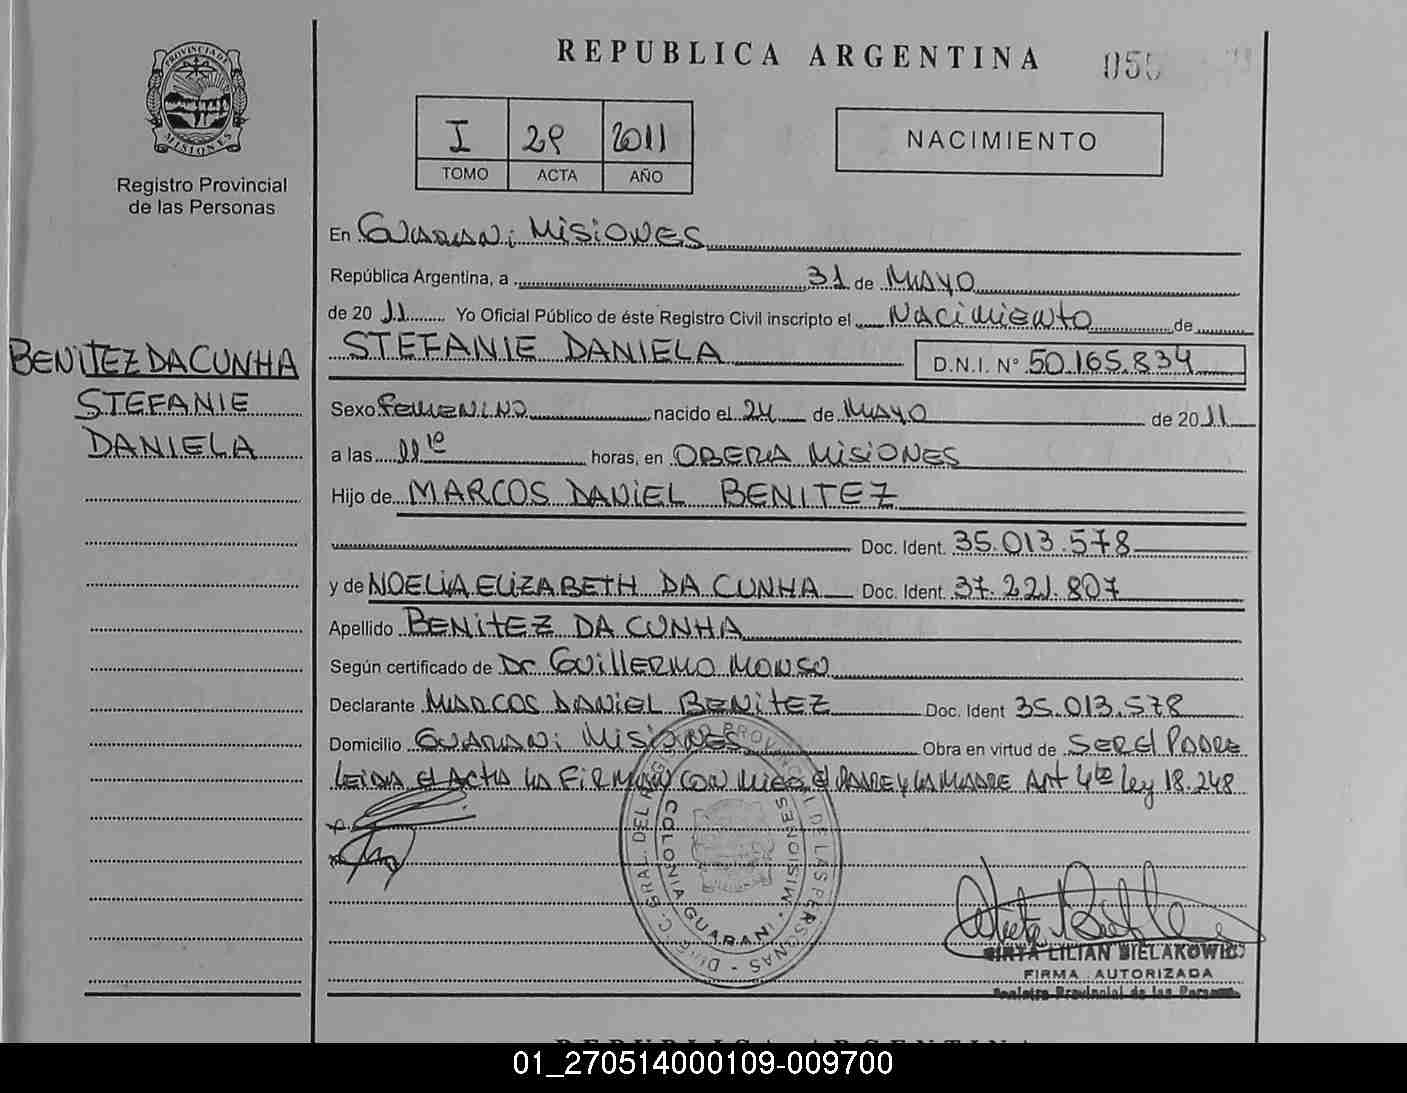 REPUBLICA ARGENTINA
055
PROVINCIA DE MISIONES
Registro Provincial
de las Personas
I 29 2011
TOMO ACTA AÑO
NACIMIENTO
En GUARANi MiSiONES
República Argentina, a 31 de MAYO
de 20 11 Yo Oficial Público de éste Registro Civil inscripto el NACiMiENTO de
STEFANIE DANIELA D.N.I. Nº 50.165.834
BENITEZ DA CUNHA
STEFANIE
DANIELA
Sexo FEMENINO nacido el 24 de MAYO de 20 11
a las 11 horas, en OBERA MiSiONES
Hijo de MARCOS DANiEL BENITEZ
Doc. Ident. 35.013.578
y de NOELiA ELiZABETH DA CUNHA Doc. Ident. 37.221.807
Apellido BENiTEZ DA CUNHA
Según certificado de Dr. GUiLLERMO
Declarante MARCOS DANiEL BENiTEZ Doc. Ident 35.013.578
Domicilio GUARANi MiSiONES Obra en virtud de SER El PADRE
LEiDA El ACTA LA FiRMAN CON MiGO El PADRE y LA MADRE Art 4to ley 18.248
DIREC. GRAL. DEL REGISTRO PROVINCIAL DE LAS PERSONAS
COLONIA GUARANI - MISIONES
MIRTA LILIAN BIELAKOWICZ
FIRMA AUTORIZADA
Registro Provincial de las Personas
REPUBLICA ARGENTINA
01_270514000109-009700